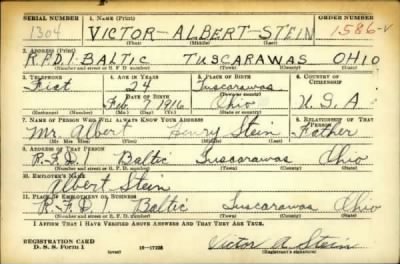 SERIAL NUMBER 1. NAME (Print) ORDER NUMBER
1304 VICTOR-ALBERT-STEIN 1586-V
(First) (Middle) (Last)
2. ADDRESS (Print)
R.F.D.1-BALTIC TUSCARAWAS OHIO
(Number and street or R. F. D. number) (Town) (County) (State)
3. TELEPHONE 4. AGE IN YEARS 5. PLACE OF BIRTH 6. COUNTRY OF CITIZENSHIP
Fiat 24 Tuscarawas
DATE OF BIRTH (Town or county)
Feb 9 1916 Ohio U.S.A.
(Exchange) (Number) (Mo.) (Day) (Yr.) (State or country)
7. NAME OF PERSON WHO WILL ALWAYS KNOW YOUR ADDRESS 8. RELATIONSHIP OF THAT PERSON
Mr. Albert Henry Stein Father
(Mr. Mrs. Miss) (First) (Middle) (Last)
9. ADDRESS OF THAT PERSON
R.F.D.1 Baltic Tuscarawas Ohio
(Number and street or R. F. D. number) (Town) (County) (State)
10. EMPLOYER'S NAME
Albert Stein
11. PLACE OF EMPLOYMENT OR BUSINESS
R.F.D.1 Baltic Tuscarawas Ohio
(Number and street or R. F. D. number) (Town) (County) (State)
I AFFIRM THAT I HAVE VERIFIED ABOVE ANSWERS AND THAT THEY ARE TRUE.
REGISTRATION CARD
D. S. S. Form 1 (over) 16-17105 Victor A Stein
(Registrant's signature)